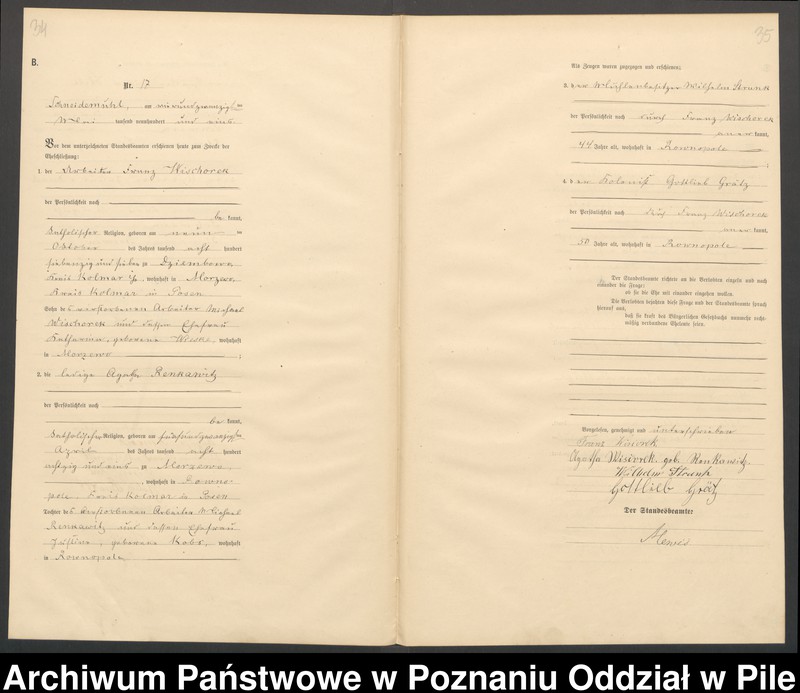 34
B.
Nr. 17
Schneidemühl, am vierundzwanzigsten
Mai tausend neunhundert und eins
Vor dem unterzeichneten Standesbeamten erschienen heute zum Zwecke der
Eheschließung:
1. der Arbeiter Franz Wischorek
der Persönlichkeit nach
be kannt,
katholischer Religion, geboren am neunten
Oktober des Jahres tausend acht hundert
siebenzig und sieben zu Dziembowo,
Kreis Kolmar i/P, wohnhaft in Morzewo,
Kreis Kolmar in Posen
Sohn des verstorbenen Arbeiter Michael
Wischorek und dessen Ehefrau
Katharina, geborene Wieske, wohnhaft
in Morzewo ;
2. die ledige Agathe Renkawitz
der Persönlichkeit nach
be kannt,
katholischer Religion, geboren am fünfundzwanzigsten
April des Jahres tausend acht hundert
achtzig und eins zu Morzewo
, wohnhaft in Rowno-
pole, Kreis Kolmar in Posen
Tochter des verstorbenen Arbeiter Michael
Renkawitz und dessen Ehefrau
Justine, geborene Kabs, wohnhaft
in Rownopole
35
Als Zeugen waren zugezogen und erschienen:
3. der Mühlenbesitzer Wilhelm Strunk
der Persönlichkeit nach durch Franz Wischorek
aner kannt,
44 Jahre alt, wohnhaft in Rownopole ;
4. der Kolonist Gottlieb Grätz
der Persönlichkeit nach durch Franz Wischorek
aner kannt,
50 Jahre alt, wohnhaft in Rownopole
Der Standesbeamte richtete an die Verlobten einzeln und nach
einander die Frage:
ob sie die Ehe mit einander eingehen wollen.
Die Verlobten bejahten diese Frage und der Standesbeamte sprach
hierauf aus,
daß sie kraft des Bürgerlichen Gesetzbuchs nunmehr recht-
mäßig verbundene Eheleute seien.
Vorgelesen, genehmigt und unterschrieben
Franz Wisiorek
Agatha Wisiorek geb. Renkawitz.
Wilhelm Strunk
Gottlieb Grätz
Der Standesbeamte
Archiwum Państwowe w Poznaniu Oddział w Pile